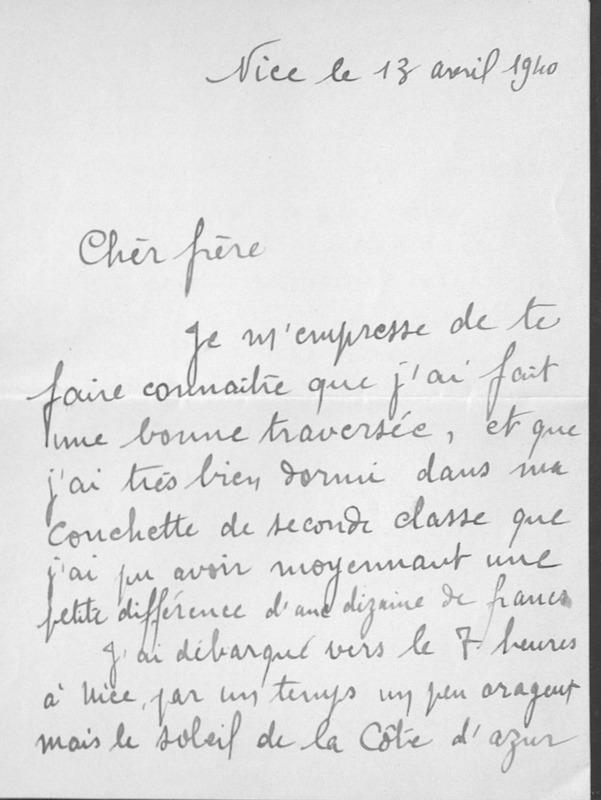 Nice le 13 avril 1940
Chèr frère
Je m'empresse de te
faire connaitre que j'ai fait
une bonne traversée, et que
j'ai très bien dormi dans ma
couchette de seconde classe que
j'ai pu avoir moyennant une
petite différence d'une dizaine de francs
J'ai débarqué vers le 7 heures
à Nice, par un temps un peu orageux
mais le soleil de la Côte d'azur